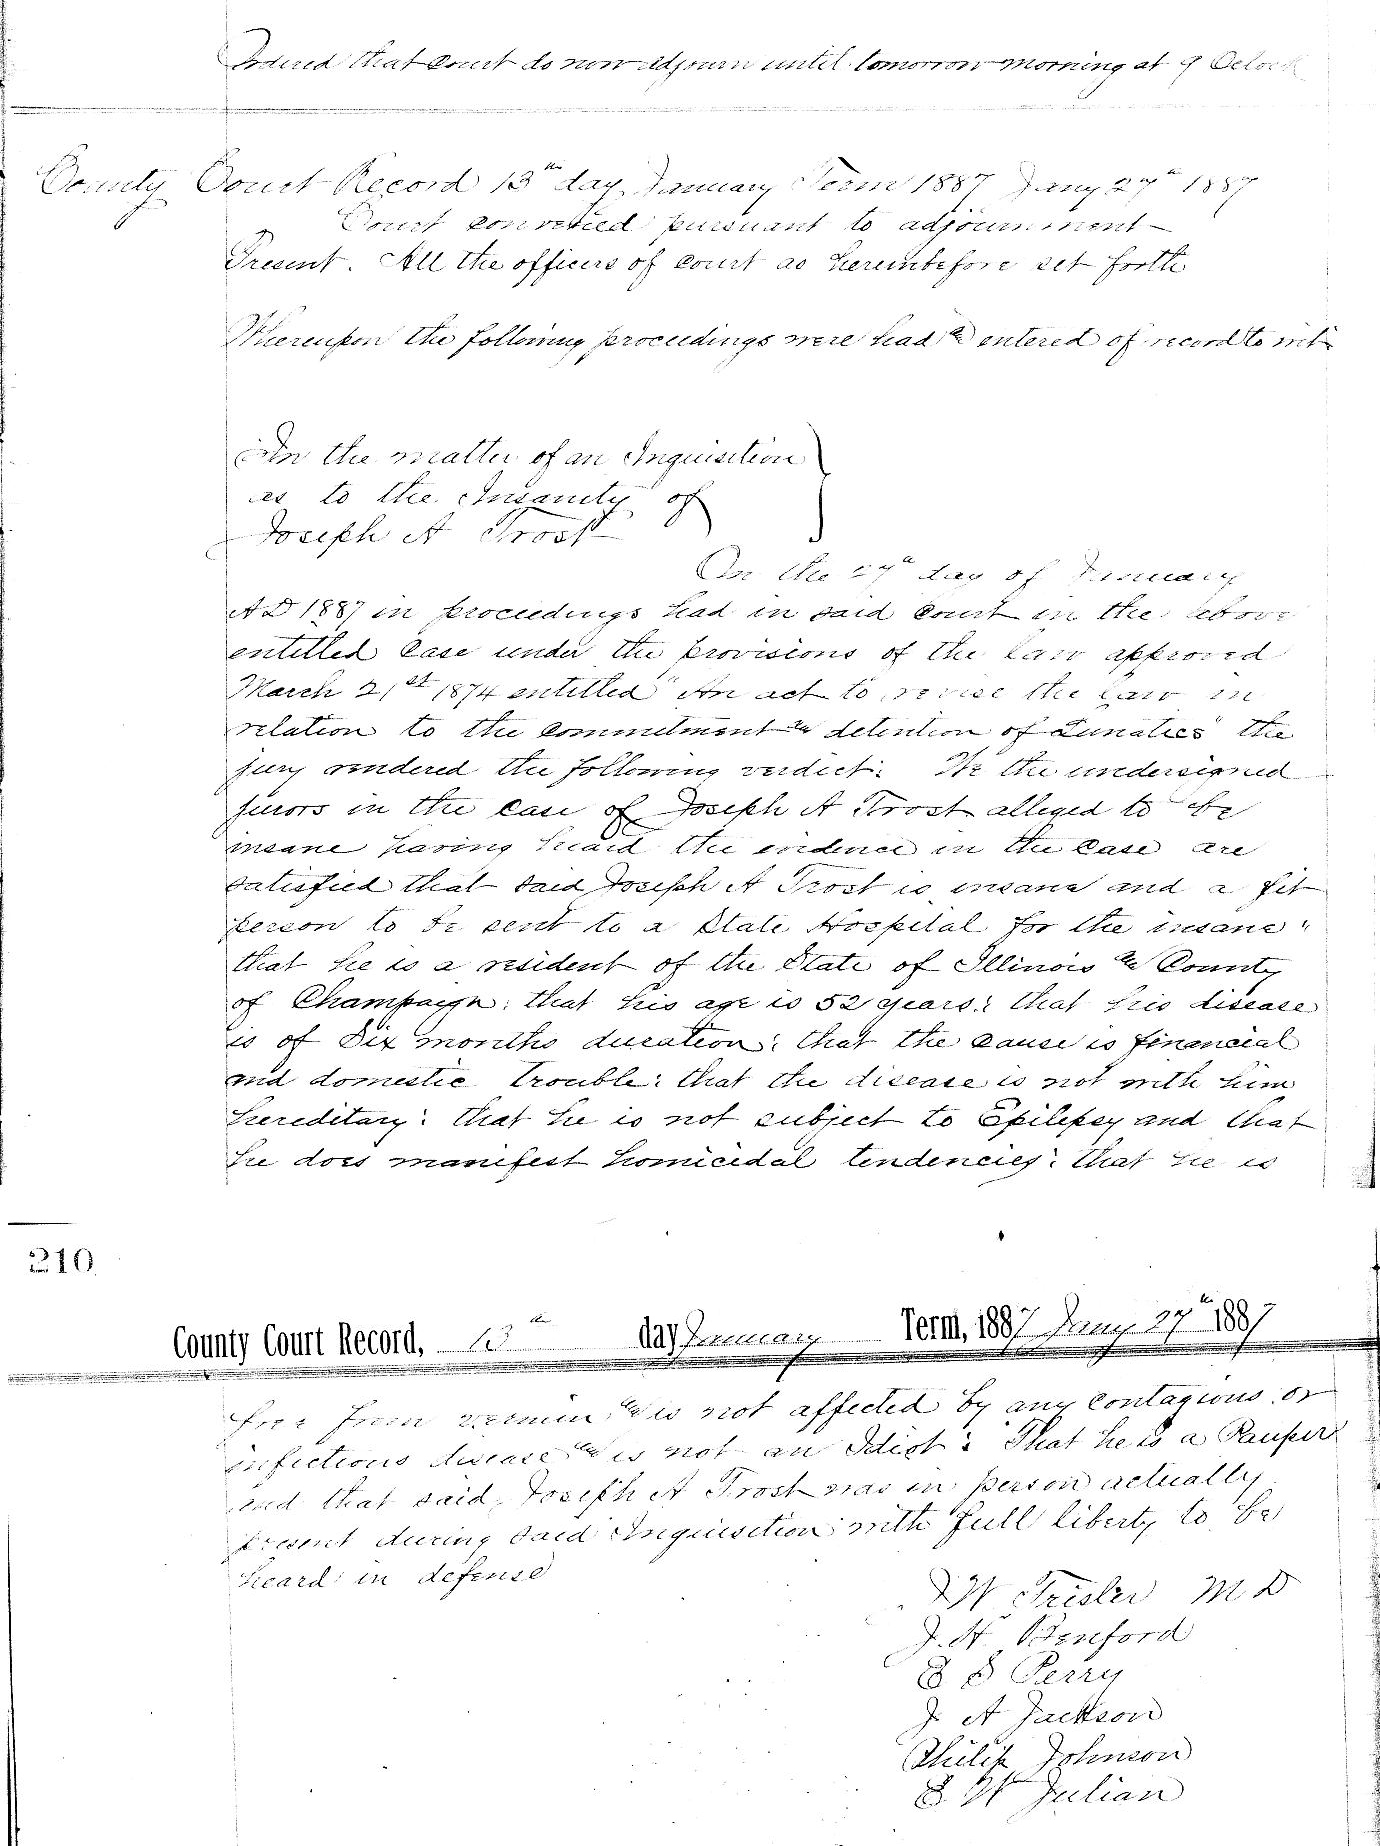 Ordered that Court do now adjourn until tomorrow morning at 9 Oclock
County Court Record 13th day January Term 1887 Jany 27th 1887
Court convened pursuant to adjournment –
Present. All the officers of court as hereinbefore set forth
Whereupon the following proceedings were had & entered of record to wit
In the matter of an Inquisition
as to the Insanity of
Joseph A Trost
On the 27th day of January
A D 1887 in proceedings had in said Court in the above
entitled Case under the provisions of the law approved
March 21st 1874 entitled "An act to revise the law in
relation to the Commitment & detention of Lunatics" the
jury rendered the following verdict: We the undersigned
jurors in the case of Joseph A Trost alleged to be
insane having heard the evidence in the Case are
satisfied that said Joseph A Trost is insane and a fit
person to be sent to a State Hospital for the insane:
that he is a resident of the State of Illinois & County
of Champaign: that his age is 52 years: that his disease
is of Six months duration: that the cause is financial
and domestic trouble: that the disease is not with him
hereditary: that he is not subject to Epilepsy and that
he does manifest homicidal tendencies: that he is
210
County Court Record, 13th day January Term, 1887 Jany 27th 1887
free from vermin & is not affected by any contagious or
infectious disease & is not an Idiot: That he is a Pauper
and that said Joseph A Trost was in person actually
present during said Inquisition with full liberty to be
heard in defense
W Trisler M D
J. H. Benford
S Perry
J A Jackson
Philip Johnson
W Julian